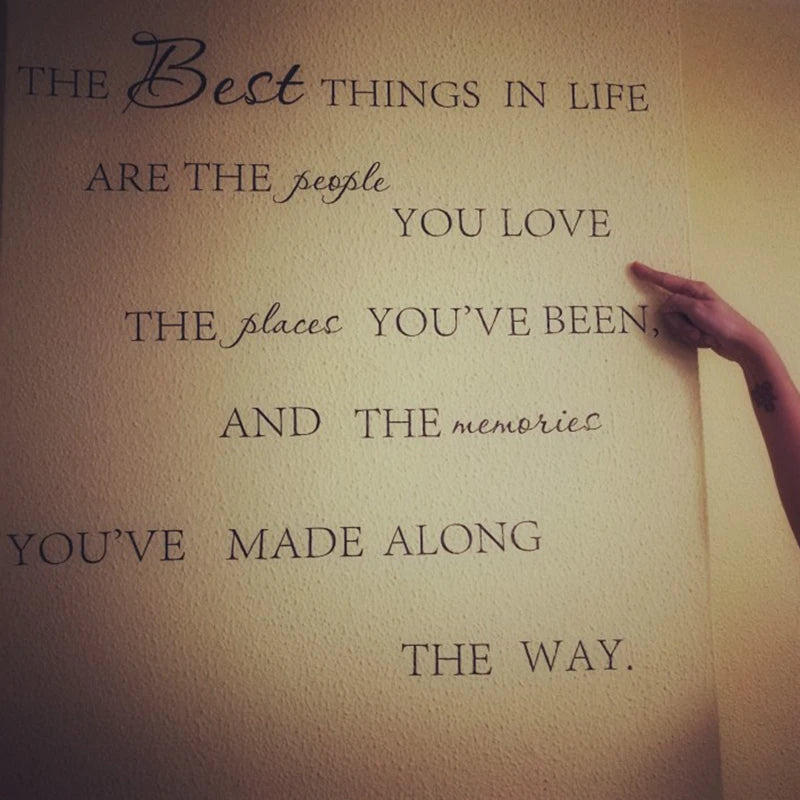 THE Best THINGS IN LIFE
ARE THE people
YOU LOVE
THE places YOU'VE BEEN,
AND THE memories
YOU'VE MADE ALONG
THE WAY.